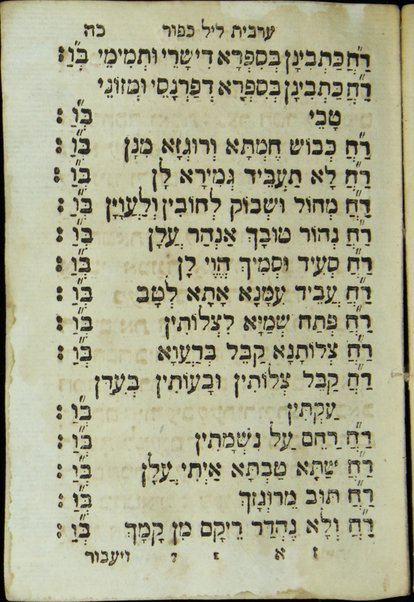 ערבית ליל כפור כה
רַ״חֲ כַּתְבִינָן בְּסִפְרָא דִישָׁרֵי וּתְמִימֵי בְּוַ״ :
רַ״חֲ כַּתְבִינָן בְּסִפְרָא דְפַרְנָסֵי וּמְזוֹנֵי
טָבֵי בְּוַ״ :
רַ״חֲ כְּבוֹשׁ חֶמְתָּא וְרוּגְזָא מִנָּן בְּוַ״ :
רַ״חֲ לָא תַעְבֵּיד גְּמִירָא לָן בְּוַ״ :
רַ״חֲ מְחוֹר וּשְׁבוֹק לְחוֹבִין וְלַעֲוָיָן בְּוַ״ :
רַ״חֲ נְהוֹר טוּבָךְ אַנְהַר עֲלָן בְּוַ״ :
רַ״חֲ סְעִיד וּסְמִיךְ הֱוֵי לָן בְּוַ״ :
רַ״חֲ עֲבֵיד עִמָּנָא אָתָא לְטָב בְּוַ״ :
רַ״חֲ פְּתַח שְׁמַיָּא לִצְלוֹתִין בְּוַ״ :
רַ״חֲ צְלוֹתָנָא קַבֵּל בְּרַעֲוָא בְּוַ״ :
רַ״חֲ קַבֵּל צְלוֹתִין וּבָעוֹתִין בְּעִדָּן
עֲקָתִין בְּוַ״ :
רַ״חֲ רַחֵם עַל נִשְׁמָתִין בְּוַ״ :
רַ״חֲ שַׁתָּא טָבְתָּא אַיְתִי עֲלָן בְּוַ״ :
רַ״חֲ תּוּב מֵרוּגְזָךְ בְּוַ״ :
רַ״חֲ וְלָא נֶהְדַּר רֵיקָם מִן קַמָּךְ בְּוַ״ :
ז א ז ד ויעבור